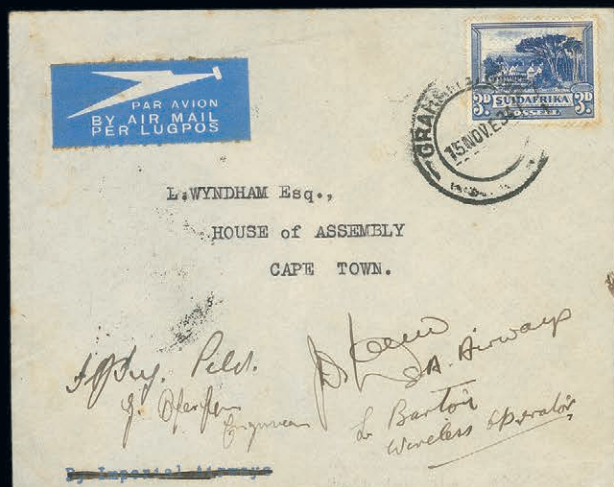 PAR AVION
BY AIR MAIL
PER LUGPOS
3D SUIDAFRIKA 3D
POSSEËL
15 NOV
L.WYNDHAM Esq.,
HOUSE of ASSEMBLY
CAPE TOWN.
Pilot.
Engineer
S.A. Airways
Barton
Wireless operator
By Imperial Airways